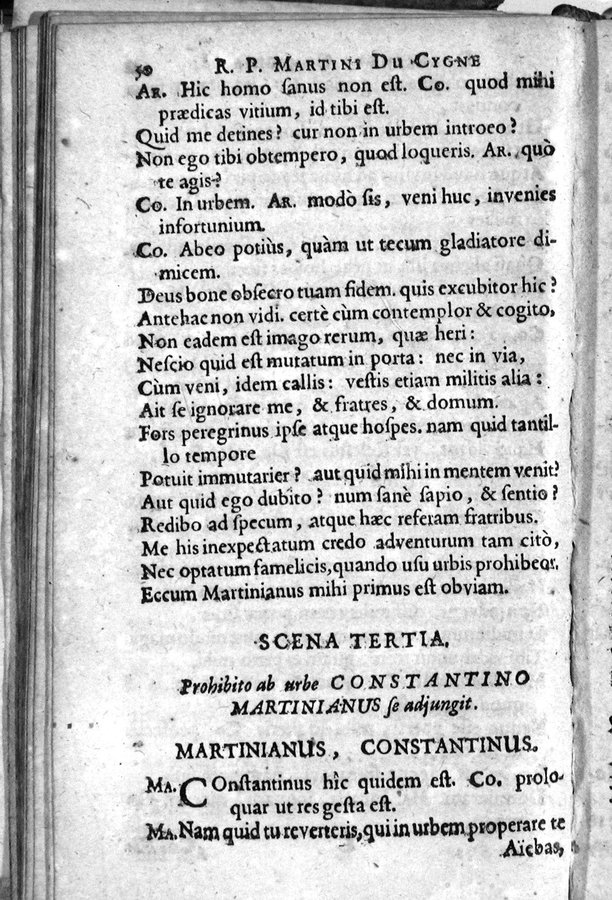 50 R. P. MARTINI DU CYGNE
AR. Hic homo ſanus non eſt. CO. quod mihi
prædicas vitium, id tibi eſt.
Quid me detines? cur non in urbem introeo?
Non ego tibi obtempero, quod loqueris. AR. quò
te agis?
CO. In urbem. AR. modò ſis, veni huc, invenies
infortunium.
CO. Abeo potiùs, quàm ut tecum gladiatore di-
micem.
Deus bone obſecro tuam fidem. quis excubitor hic?
Antehac non vidi. certè cùm contemplor & cogito,
Non eadem eſt imago rerum, quæ heri:
Neſcio quid eſt mutatum in porta: nec in via,
Cùm veni, idem callis: veſtis etiam militis alia:
Ait ſe ignorare me, & fratres, & domum.
Fors peregrinus ipſe atque hoſpes. nam quid tantil-
lo tempore
Potuit immutarier? aut quid mihi in mentem venit?
Aut quid ego dubito? num ſanè ſapio, & ſentio?
Redibo ad ſpecum, atque hæc referam fratribus.
Me his inexpectatum credo adventurum tam citò,
Nec optatum famelicis, quando uſu urbis prohibeor.
Eccum Martinianus mihi primus eſt obviam.
SCENA TERTIA.
Prohibito ab urbe CONSTANTINO
MARTINIANUS ſe adjungit.
MARTINIANUS, CONSTANTINUS.
MA. COnſtantinus hîc quidem eſt. CO. prolo-
quar ut res geſta eſt.
MA. Nam quid tu reverteris, qui in urbem properare te
Aïebas,